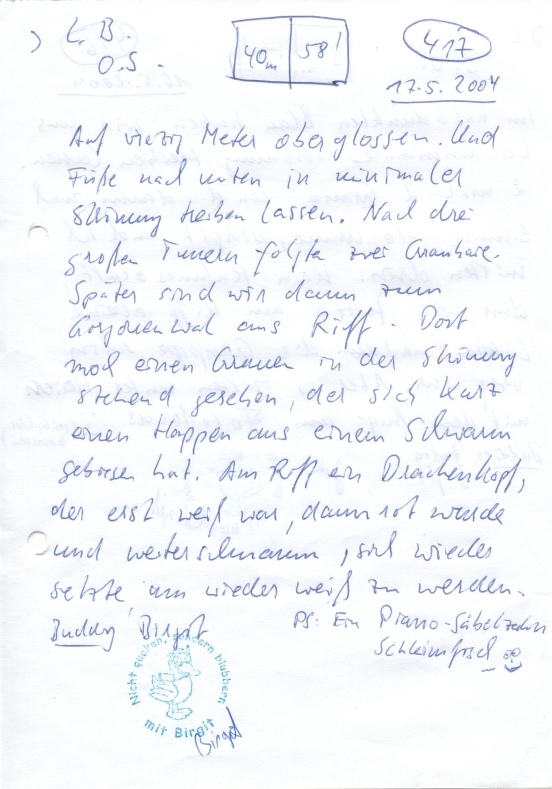 L. B.
O. S.
40m 58!
417
17.5.2004
Auf vierzig Meter oberglossen. Und
Füße nach unten in minimaler
Strömung treiben lassen. Nach drei
großen Tunern folgte zwei Grauhaie.
Später sind wir dann zum
Gorgonenwal ans Riff. Dort
noch einen Grauen in der Strömung
stehend gesehen, der sich kurz
einen Happen aus einem Schwarm
gebissen hat. Am Riff ein Drachenkopf,
der erst weiß war, dann rot wurde
und weiterschwamm, sich wieder
setzte um wieder weiß zu werden.
Buddy Birgit
PS: Ein Piano-Säbelzahn
Schleimfisch
Nicht gucken, sondern blubbern
mit Birgit
Birgit